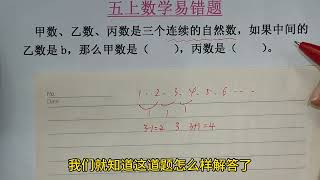 五上数学易错题
甲数、乙数、丙数是三个连续的自然数，如果中间的
乙数是b，那么甲数是（ ），丙数是（ ）。
No.
Date
1、2、3、4、5、6……
1 1 1
3-1=2 3 3+1=4
我们就知道这道题怎么样解答了